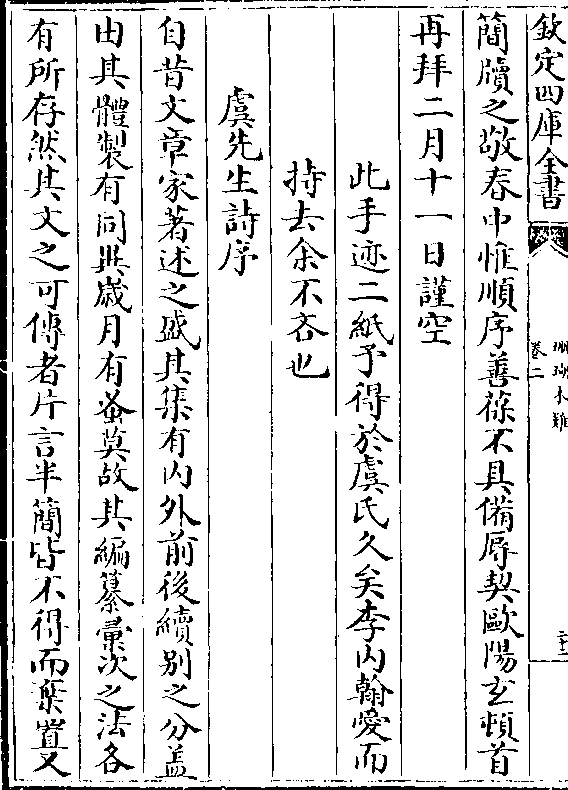 欽定四庫全書
珊瑚木難
卷二
簡牘之敬春中惟順序善葆不具備辱契歐陽玄頓首
再拜二月十一日謹空
此手迹二紙予得於虞氏久矣李内翰愛而
持去余不吝也
虞先生詩序
自昔文章家著述之盛其集有内外前後續别之分盖
由其體製有同異歲月有蚤莫故其編纂彚次之法各
有所存然其文之可傳者片言半簡皆不得而棄置又